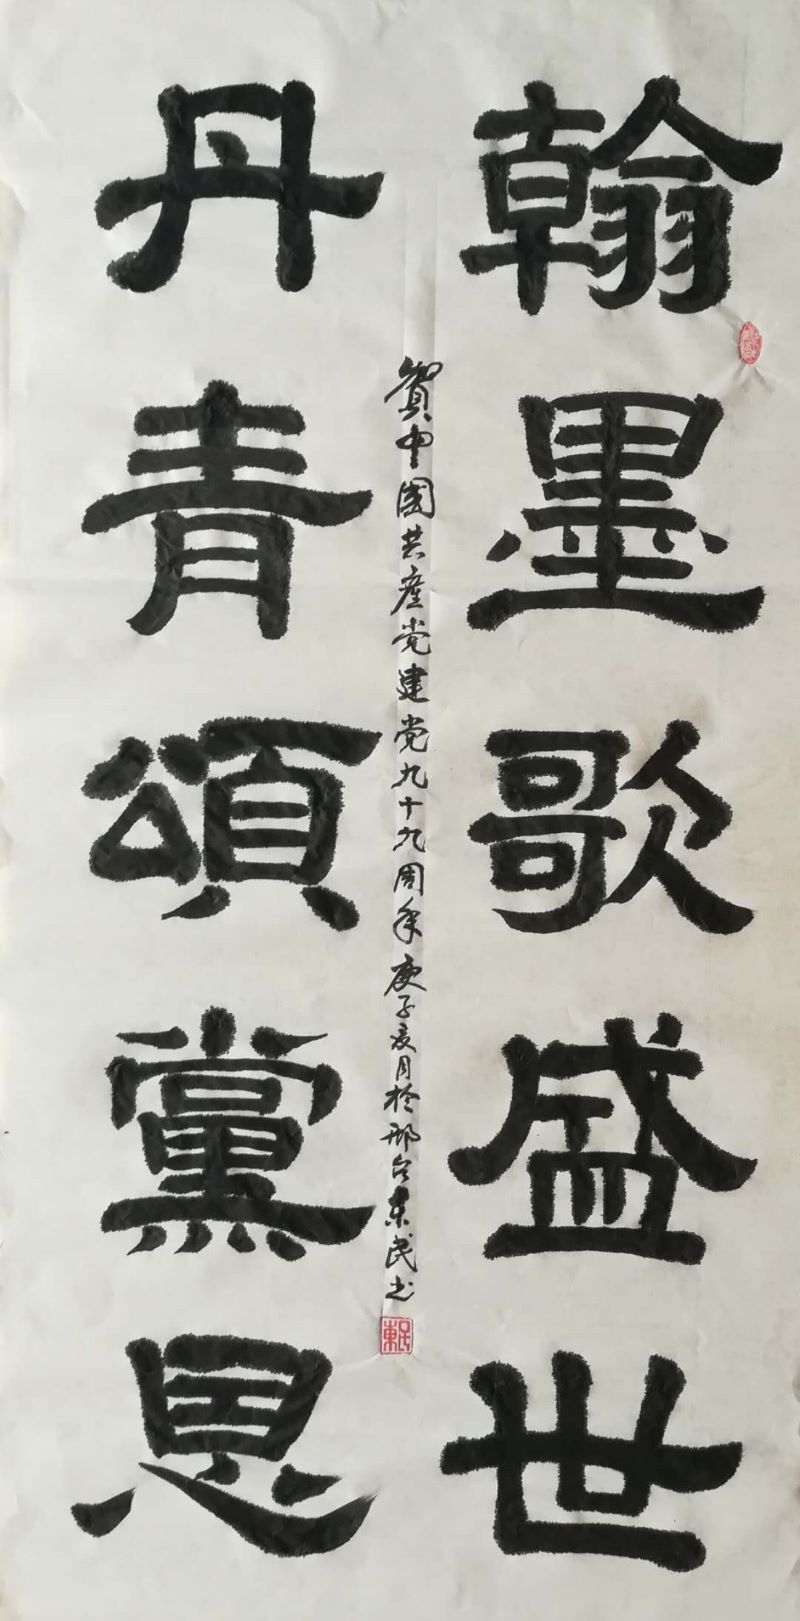 翰墨歌盛世
丹青頌黨恩
賀中國共產党建党九十九周年庚子夏月於邢台東民书
東民